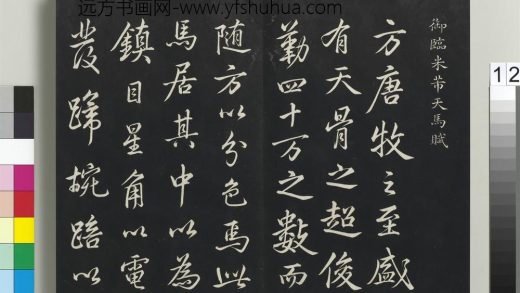 远方书画网-www.yfshuhua.com
御臨米芾天馬賦
方唐牧之至盛
有天骨之超俊
勒四十万之數而
随方以分色焉此
馬居其中以為
鎮目星角以電
發蹄椀踣以
1 2